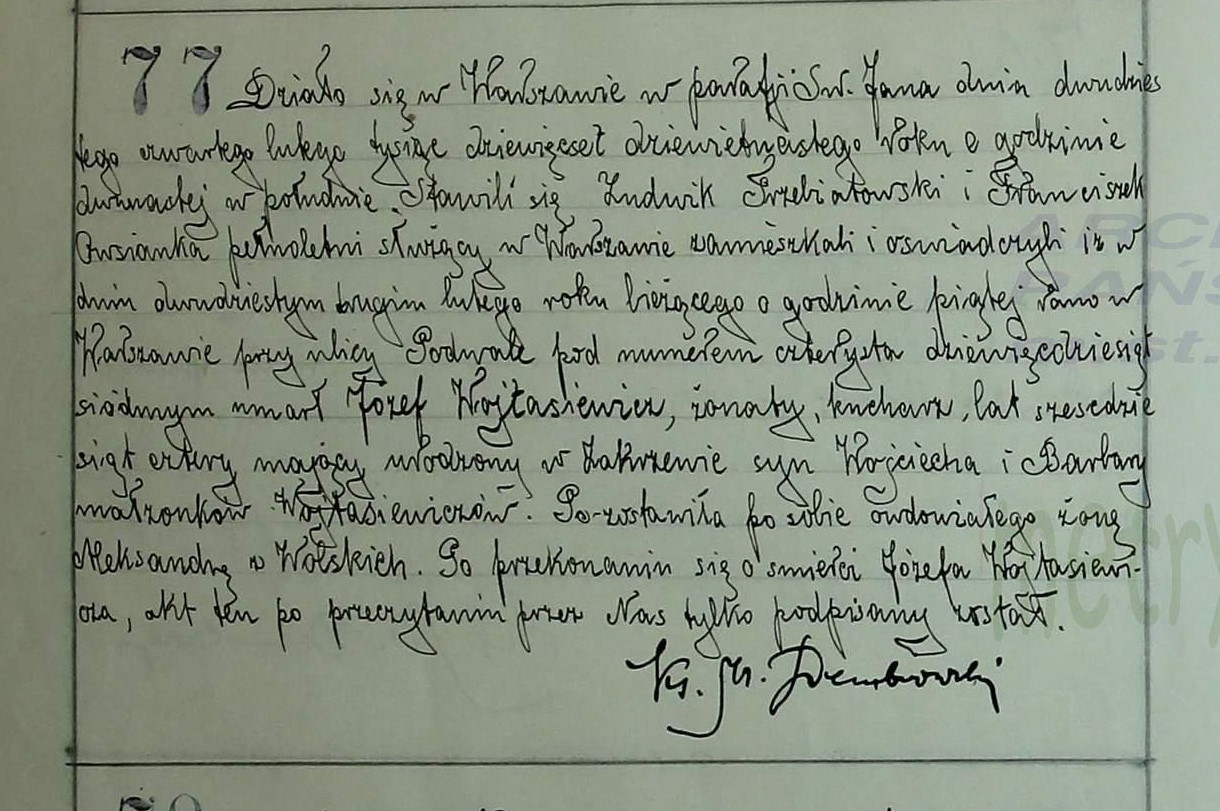 77 Działo się w Warszawie w parafji Św. Jana dnia dwudzies
tego czwartego lutego tysiąc dziewięćset dziewiętnastego roku o godzinie
dwunastej w południe. Stawili się Ludwik Przebiatowski i Franciszek
Owsianka pełnoletni służący w Warszawie zamieszkali i oświadczyli iż w
dniu dwudziestym drugim lutego roku bieżącego o godzinie piątej rano w
Warszawie przy ulicy Podwale pod numerem czterysta dziewięćdziesiąt
siódmym umarł Józef Wojtasiewicz, żonaty, kucharz, lat sześćdzie
siąt cztery mający urodzony w Zakrzewie syn Wojciecha i Barbary
małżonków Wojtasiewiczów. Po-zostawiła po sobie owdowiałego żonę
Aleksandrę z Wolskich. Po przekonaniu się o śmierci Józefa Wojtasiewi-
cza, akt ten po przeczytaniu przez Nas tylko podpisany został.
Ks. Dembowski
ARCH
PAŃS
st.
metry